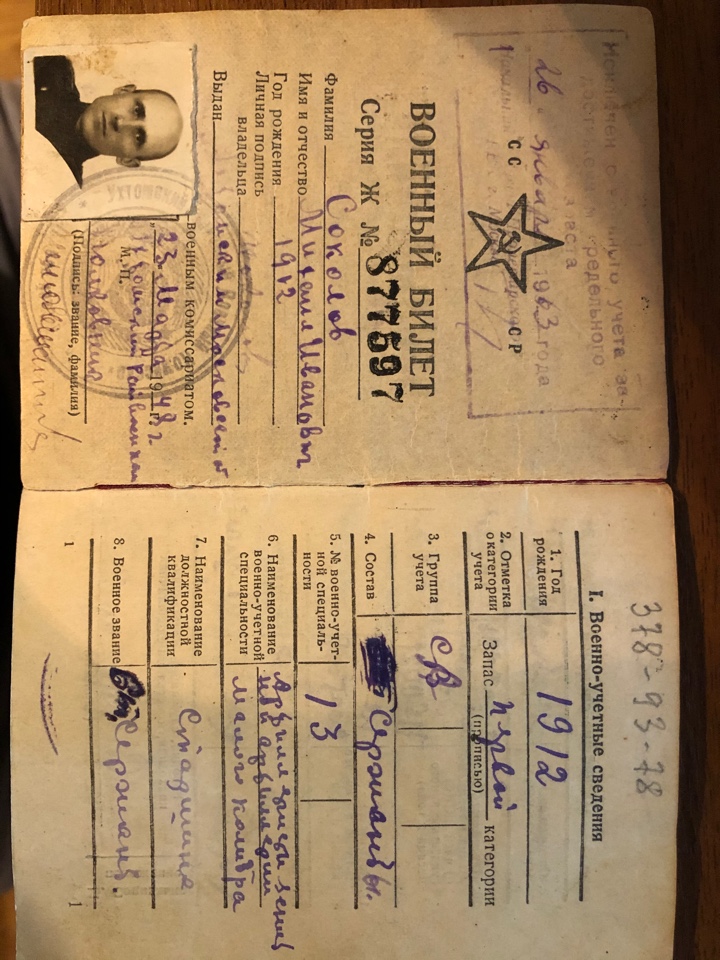 Исключен с воинского учета за
достижением предельного
возраста
26 января 1963 года
СССР
ВОЕННЫЙ БИЛЕТ
Серия Ж № 877597
Фамилия Соколов
Имя и отчество Михаил Иванович
Год рождения 1912
Личная подпись
владельца
Выдан
военным комиссариатом.
„23" Марта 1948 г.
М. П.
Полковник
(Подпись: звание, фамилия)
378-93-78
I. Военно-учетные сведения
1. Год
рождения
1912
2. Отметка
о категории
учета
Запас первой категории
(прописью)
3. Группа
учета
СВ
4. Состав
Сержанты.
5. № военно-учет-
ной специаль-
ности
13
6. Наименование
военно-учетной
специальности
малого калибра
7. Наименование
должностной
квалификации
8. Военное звание
Сержант.
1
1